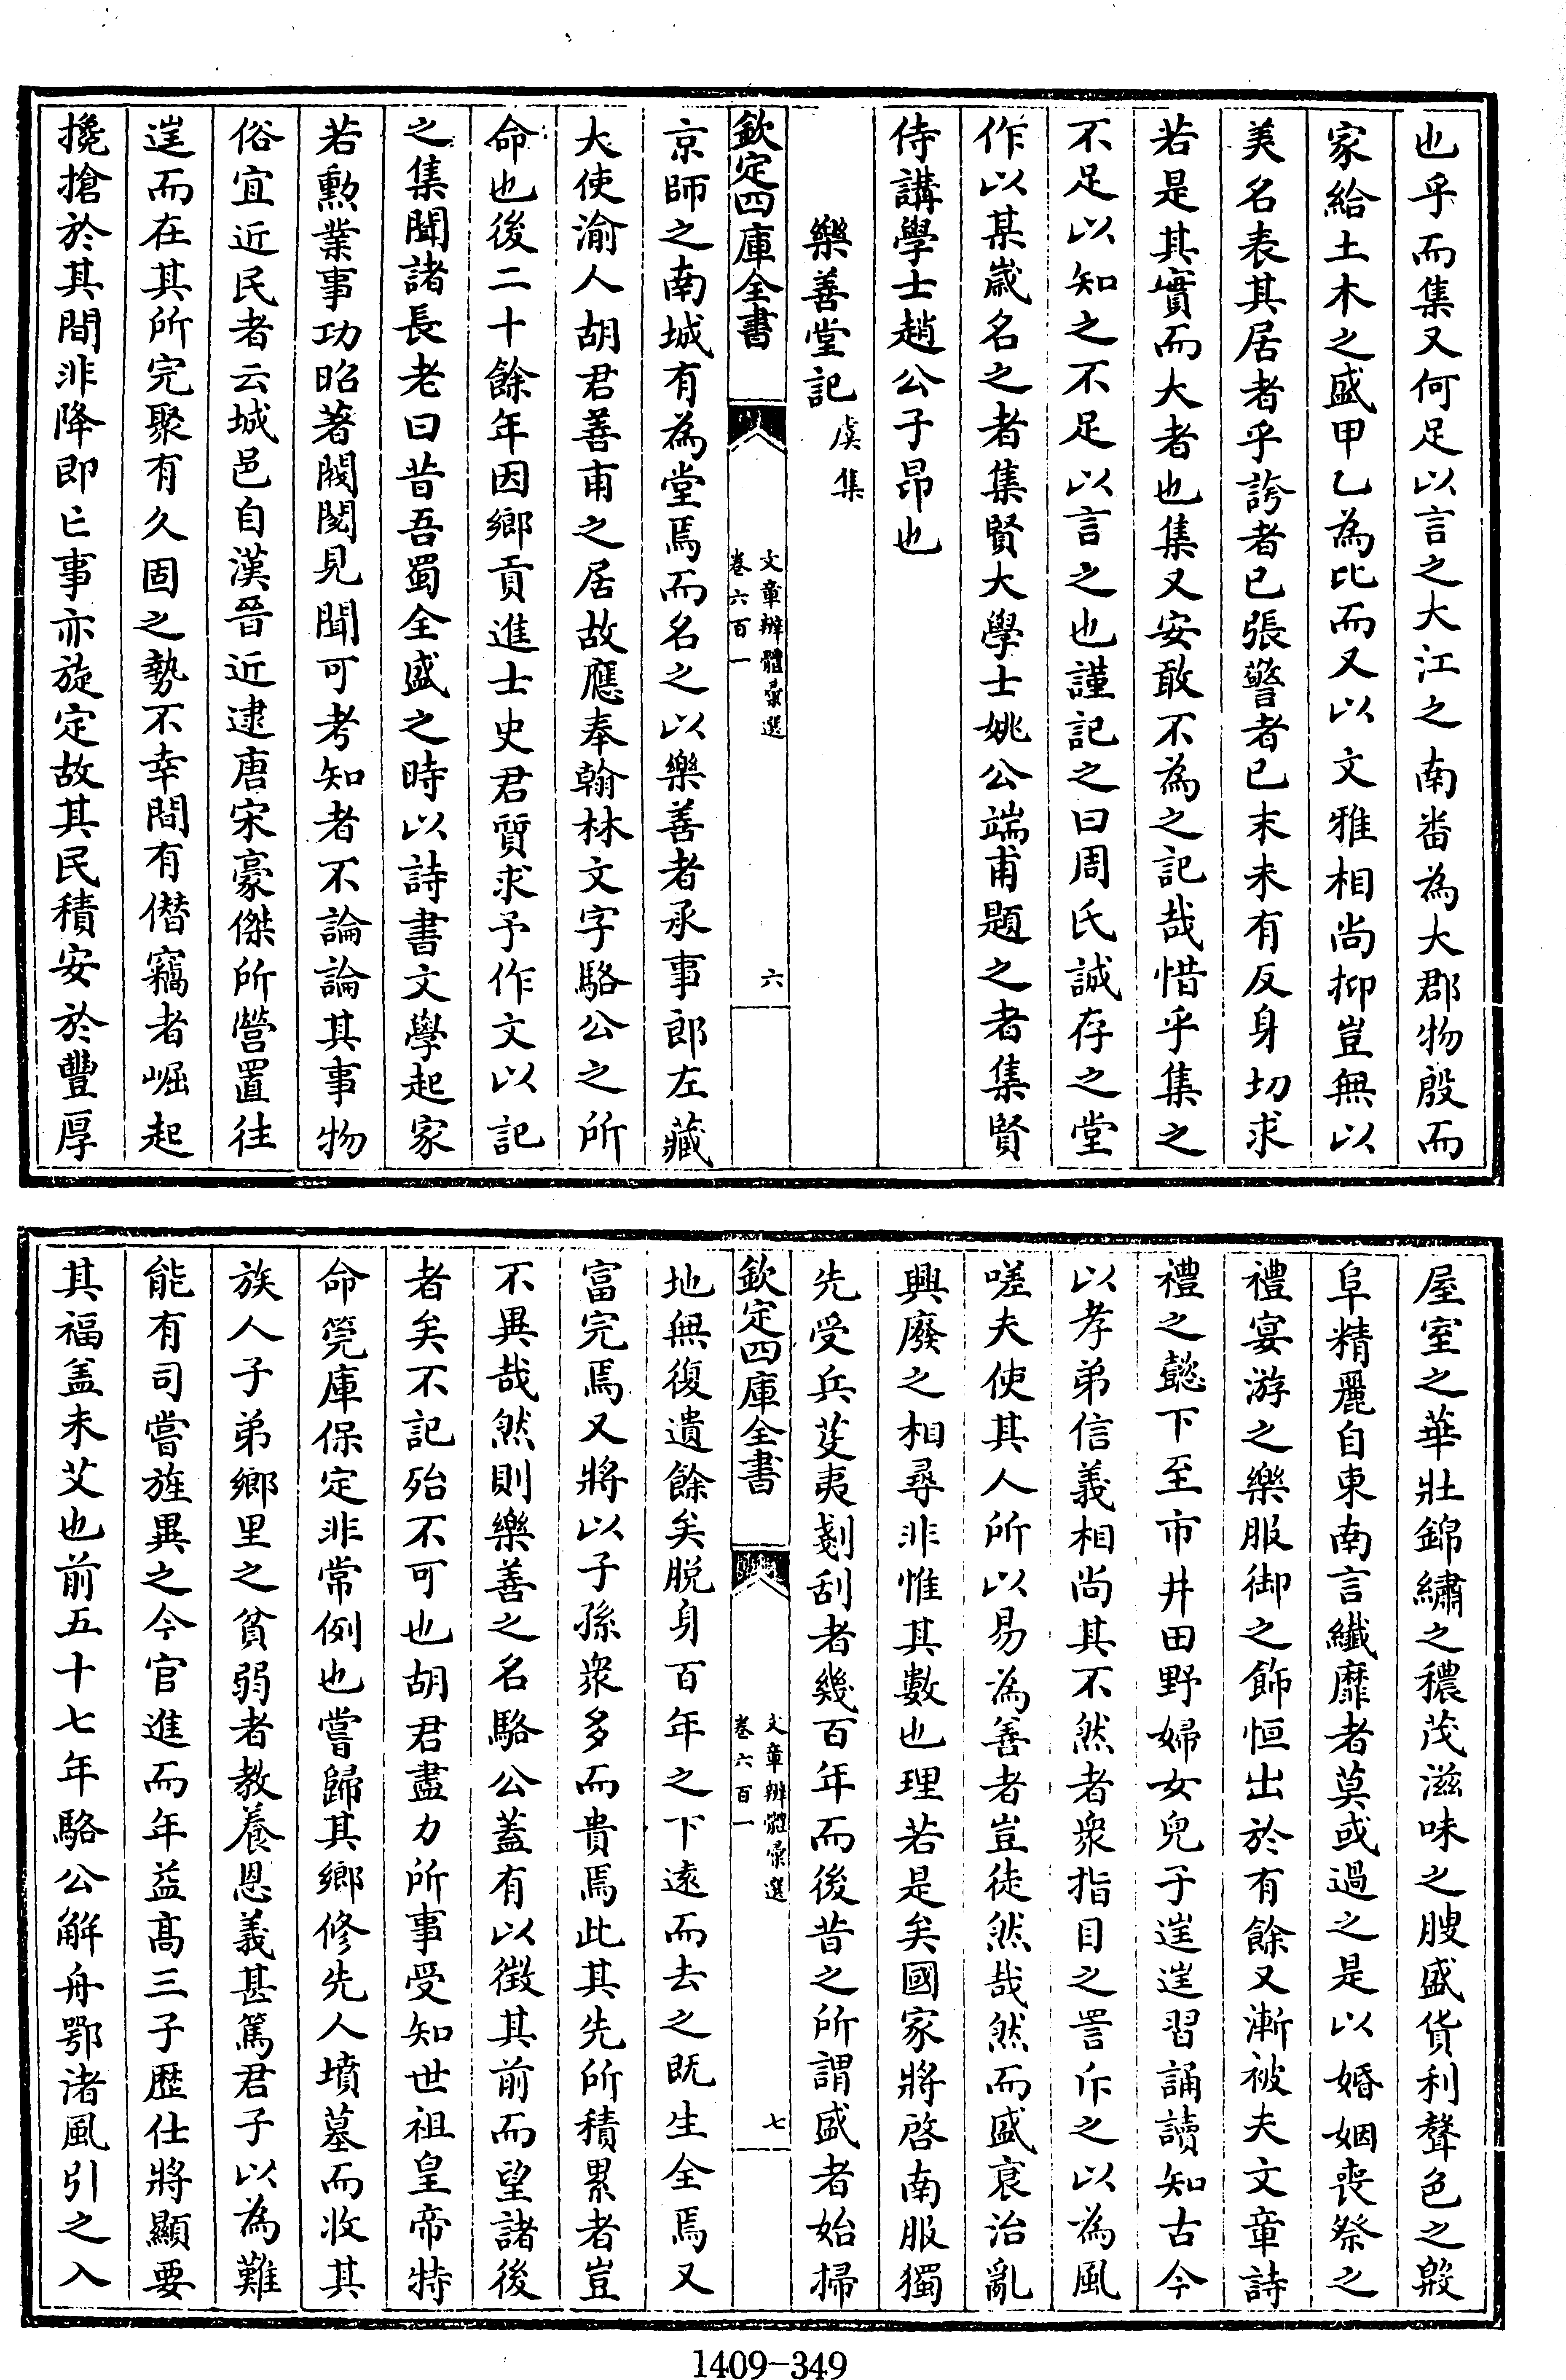 也乎而集又何足以言之大江之南畨為大郡物殷而
家給土木之盛甲乙為比而又以文雅相尚抑豈無以
美名表其居者乎誇者已張警者已末未有反身切求
若是其實而大者也集又安敢不為之記哉惜乎集之
不足以知之不足以言之也謹記之曰周氏誠存之堂
作以某歲名之者集賢大學士姚公端甫題之者集賢
侍講學士趙公子昂也
樂善堂記虞集
欽定四庫全書
文章辨體彙選
卷六百一
六
京師之南城有為堂焉而名之以樂善者承事郎左藏
大使渝人胡君善甫之居故應奉翰林文字駱公之所
命也後二十餘年因鄉貢進士史君質求予作文以記
之集聞諸長老曰昔吾蜀全盛之時以詩書文學起家
若勲業事功昭著閥閱見聞可考知者不論論其事物
俗宜近民者云城邑自漢晉近逮唐宋豪傑所營置往
逞而在其所完聚有久固之勢不幸間有僭竊者崛起
攙搶於其間非降即亡事亦旋定故其民積安於豐厚
屋室之華壯錦繡之穠茂滋味之膄盛貨利聲色之殷
阜精麗自東南言纖靡者莫或過之是以婚姻喪祭之
禮宴游之樂服御之飾恒出於有餘又漸被夫文章詩
禮之懿下至市井田野婦女兒子逞逞習誦讀知古今
以孝弟信義相尚其不然者衆指目之詈斥之以為風
嗟夫使其人所以易為善者豈徒然哉然而盛衰治亂
興廢之相尋非惟其數也理若是矣國家將啓南服獨
先受兵芟夷剗刮者幾百年而後昔之所謂盛者始掃
欽定四庫全書
文章辨體彙選
卷六百一
七
地無復遺餘矣脱身百年之下逺而去之既生全焉又
富完焉又將以子孫衆多而貴焉此其先所積累者豈
不異哉然則樂善之名駱公蓋有以徵其前而望諸後
者矣不記殆不可也胡君盡力所事受知世祖皇帝特
命筦庫保定非常例也嘗歸其鄉修先人墳墓而收其
族人子弟鄉里之貧弱者教養恩義甚篤君子以為難
能有司嘗旌異之今官進而年益髙三子歴仕將顯要
其福盖未艾也前五十七年駱公解舟鄂渚風引之入
1409-349